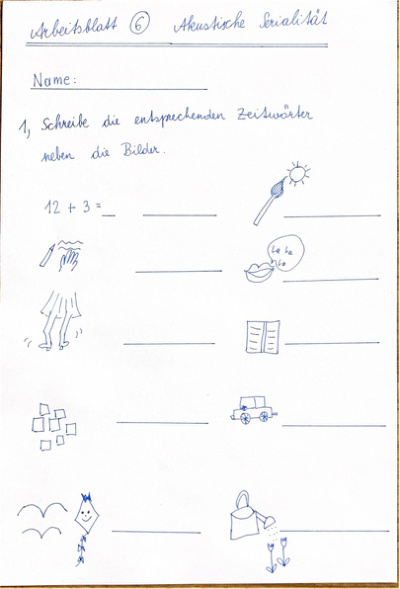 Arbeitsblatt 6 Akustische Serialität
Name:
1, Schreibe die entsprechenden Zeitwörter
neben die Bilder.
12 + 3 =
La La
La